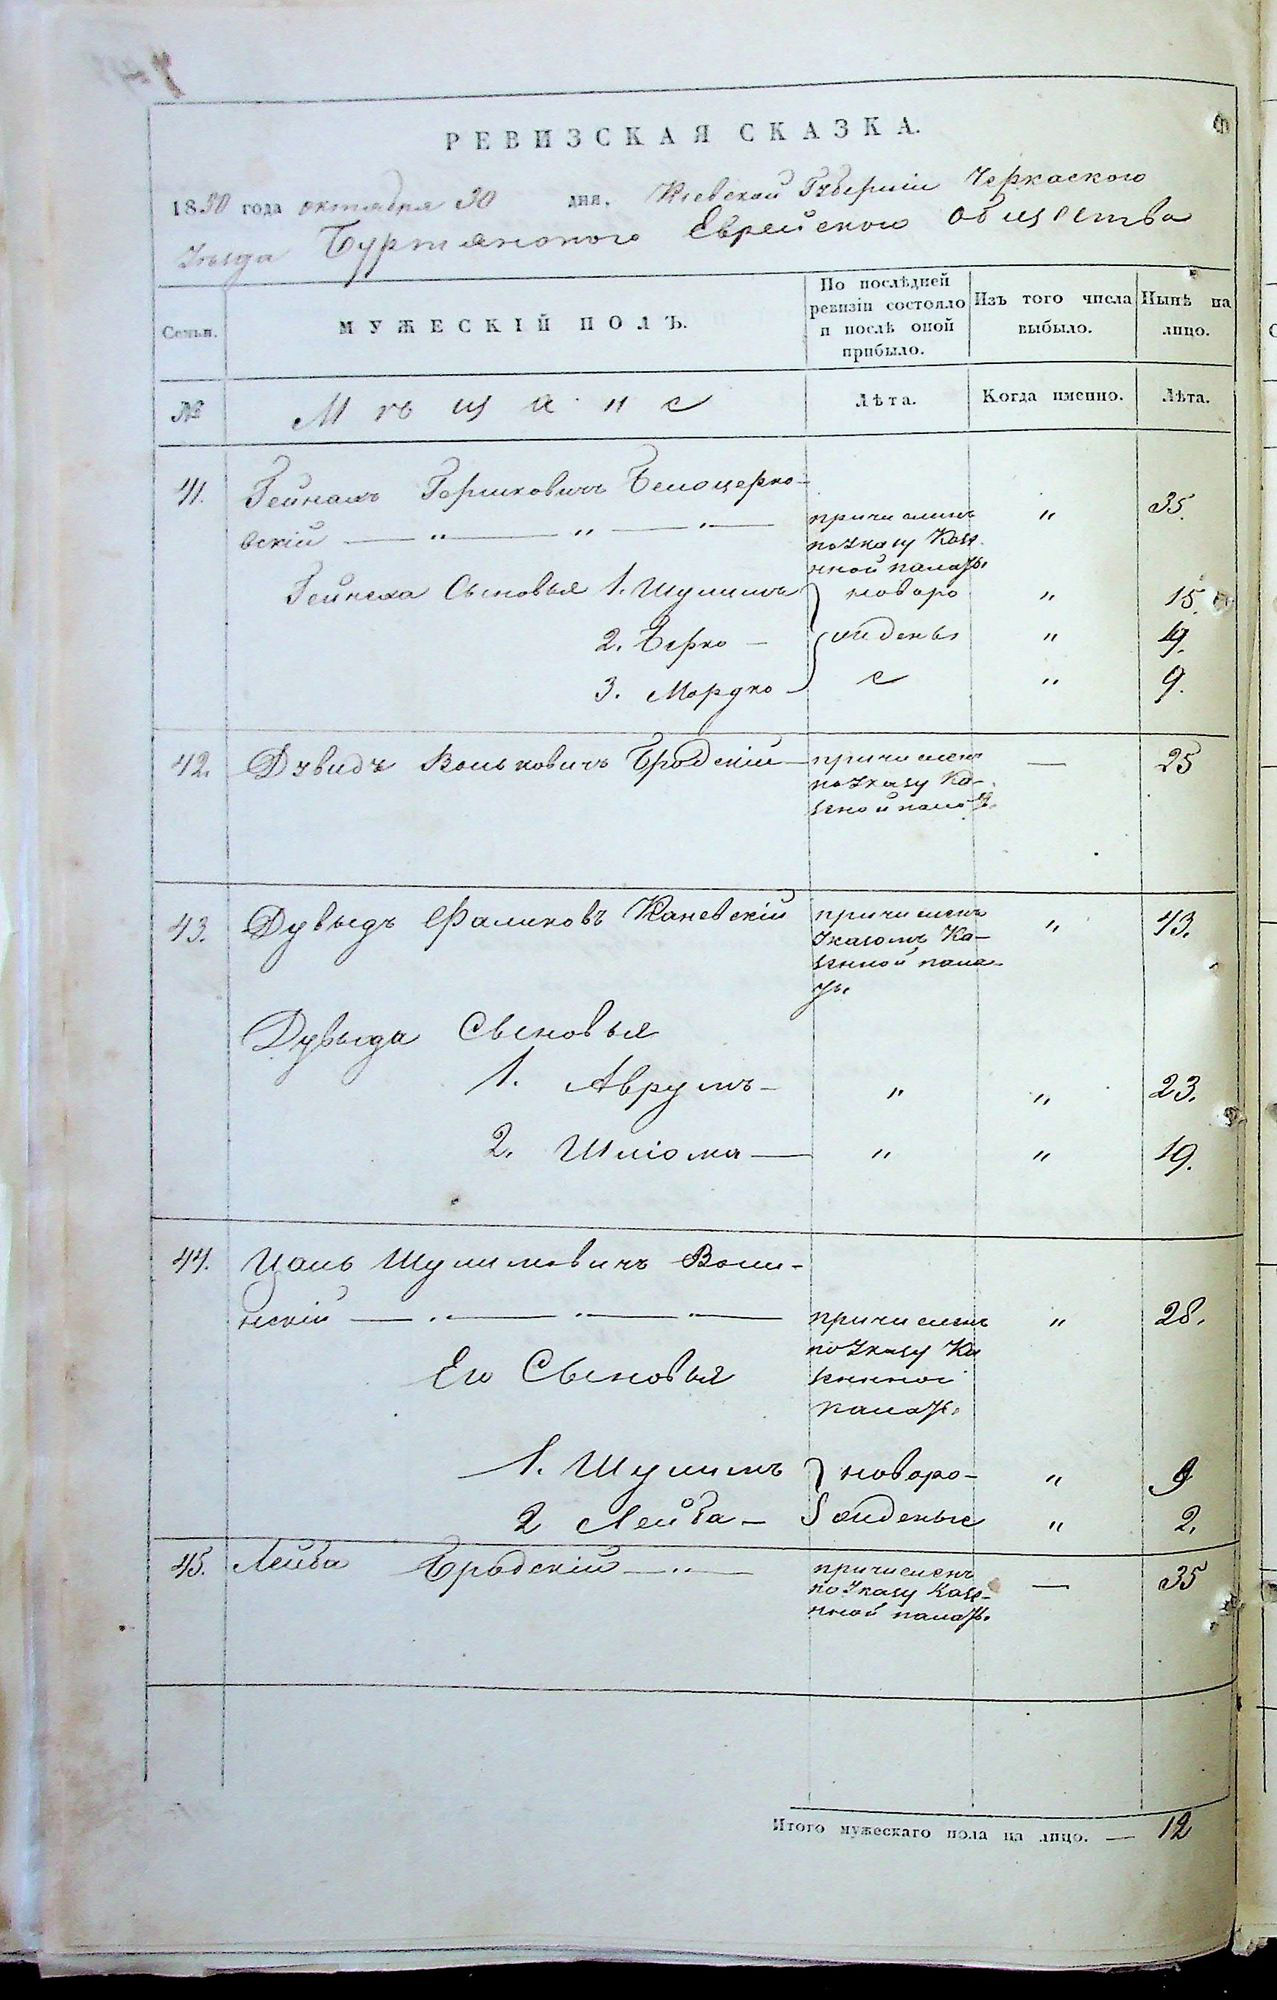 РЕВИЗСКАЯ СКАЗКА.
1850 года октября 30 дня. Кіевской Губерніи Черкаского
Уѣзда Буртянского Еврейского Общества
Семьи. МУЖЕСКІЙ ПОЛЪ. По послѣдней ревизіи состояло и послѣ оной прибыло. Изъ того числа выбыло. Нынѣ на лицо.
№ Мѣщане Лѣта. Когда именно. Лѣта.
41. Гершковичъ Белоцерко-
вскій — " — " — " — причисленъ " 35.
по Указу Казе-
нной палаты
Сыновья 1. Шулимъ новоро " 15.
2. Берко — жденны "
3. Мордко е " 9.
42. Дувидъ Вольковичъ Бродскій — причисленъ — 25
по Указу Ка-
зеной палаты
43. Дувыдъ Фаликовъ Каневскій причисленъ " 43.
Указомъ Ка-
зенной пала-
ты
Дувыда Сыновья
1. Аврумъ — " " 23.
2. Шліома — " " 19.
44. Шулимовичъ Воли-
нскій — " — " — " — причисленъ " 28.
по Указу Ка
зенной
палаты
Его Сыновья
1. Шулимъ новоро- " 9
2 Лейба — жденые " 2.
45. Лейба Бродскій — " — причисленъ — 35
по Указу Казе-
нной палаты
Итого мужескаго пола на лицо. — 12